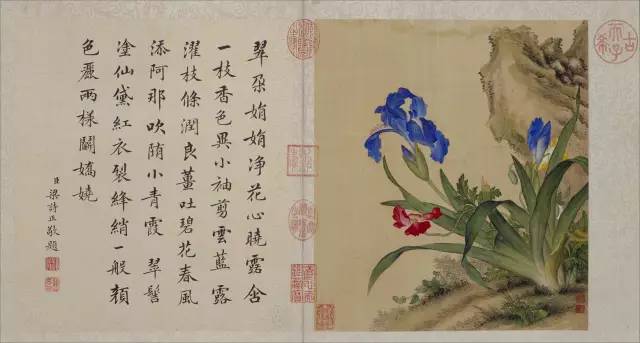 翠朶娟娟净花心曉露含
一枝香色異小袖剪雲藍 露
濯枝條潤良薑吐碧花春風
添阿那吹随小青霞 翠髻
塗仙黛紅衣裂絳綃一般顏
色麗兩樣鬭嬌嬈
臣梁詩正敬題
古稀天子